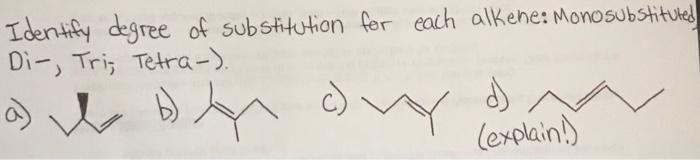 Identify degree of substitution for each alkene: Monosubstituted,
Di-, Tri-, Tetra-).
a) b) c) d)
(explain!)